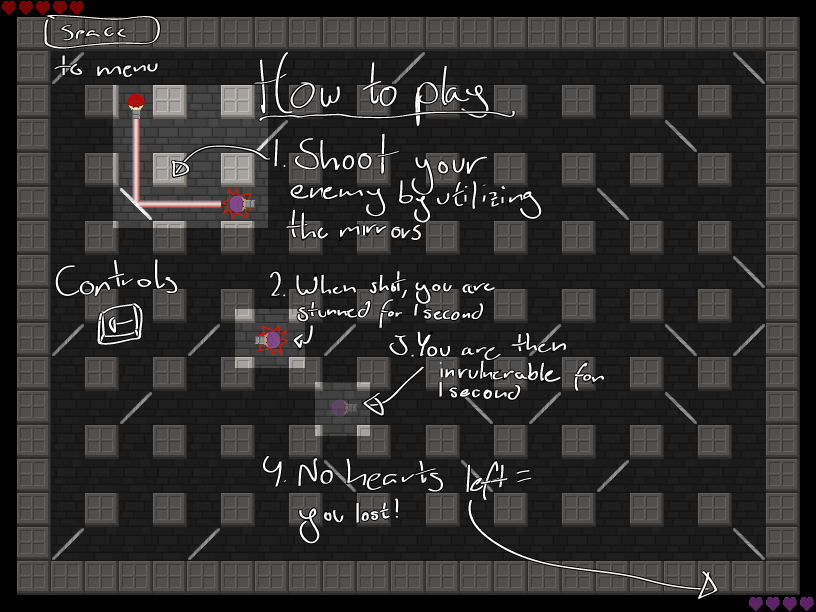 Space
to menu
How to play
1. Shoot your
enemy by utilizing
the mirrors
Controls
2. When shot, you are
stunned for 1 second
3. You are then
invulnerable for
1 second
4. No hearts left =
you lost!